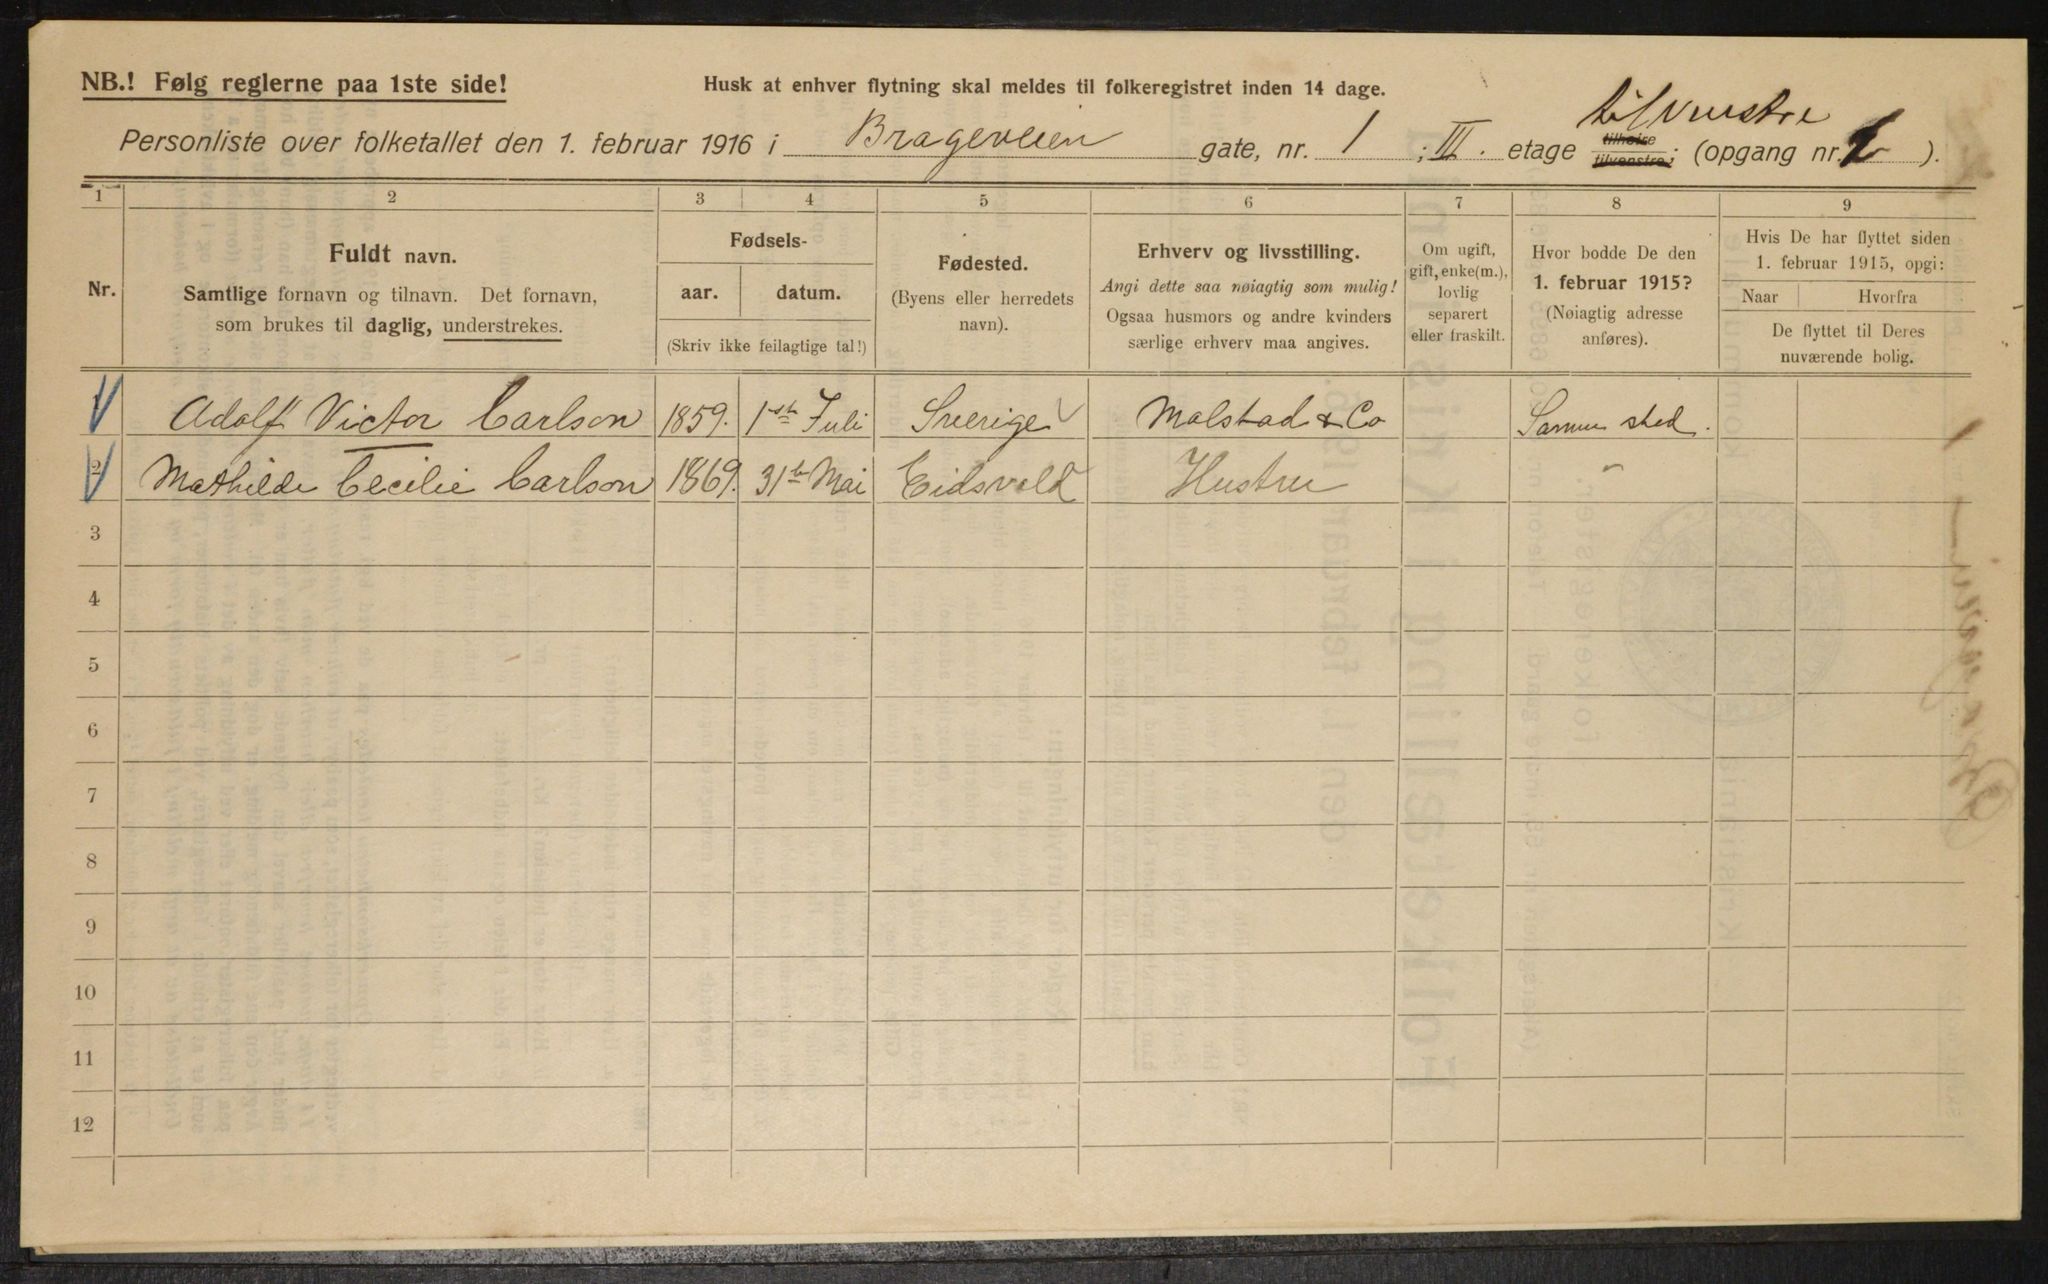 NB.! Følg reglerne paa 1ste side!
Husk at enhver flytning skal meldes til folkeregistret inden 14 dage.
tilvenstre
Personliste over folketallet den 1. februar 1916 i Brageveien gate, nr. 1 ; III. etage tilhøire tilvenstre; (opgang nr. ).
1 2 3 4 5 6 7 8 9
Nr.
Fuldt navn.
Samtlige fornavn og tilnavn. Det fornavn,
som brukes til daglig, understrekes.
Fødsels-
aar. datum.
(Skriv ikke feilagtige tal!)
Fødested.
(Byens eller herredets
navn).
Erhverv og livsstilling.
Angi dette saa nøiagtig som mulig!
Ogsaa husmors og andre kvinders
særlige erhverv maa angives.
Om ugift,
gift, enke(m.),
lovlig
separert
eller fraskilt.
Hvor bodde De den
1. februar 1915?
(Nøiagtig adresse
anføres).
Hvis De har flyttet siden
1. februar 1915, opgi:
Naar Hvorfra
De flyttet til Deres
nuværende bolig.
1 Adolf Victor Carlson 1859. 1ste Juli Sverige Malstad & Co Samme sted.
2 Mathilde Cecilie Carlson 1869. 31te Mai Eidsvold Hustru "
3
4
5
6
7
8
9
10
11
12